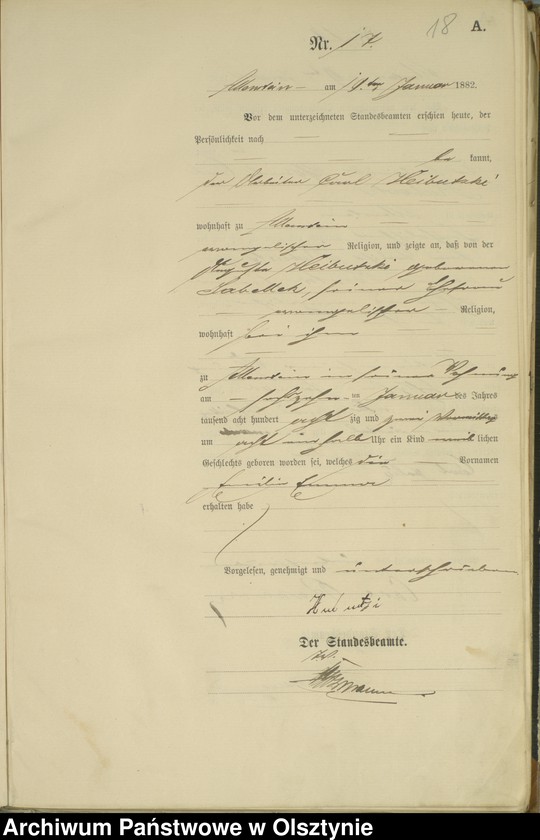 18 A.
Nr. 17.
Allenstein am 19ten Januar 1882.
Vor dem unterzeichneten Standesbeamten erschien heute, der
Persönlichkeit nach
be kannt,
der Arbeiter Carl
wohnhaft zu Allenstein
evangelischer Religion, und zeigte an, daß von der
Auguste geborenen
seiner Ehefrau
evangelischer Religion,
wohnhaft bei ihm
zu Allenstein in seiner Wohnung
am sechszehnten Januar des Jahres
tausend acht hundert achtzig und zwei Vormittags
um acht ein halb Uhr ein Kind weiblichen
Geschlechts geboren worden sei, welches die Vornamen
Emilie Emma
erhalten habe
Vorgelesen, genehmigt und unterschrieben
Der Standesbeamte.
Archiwum Państwowe w Olsztynie